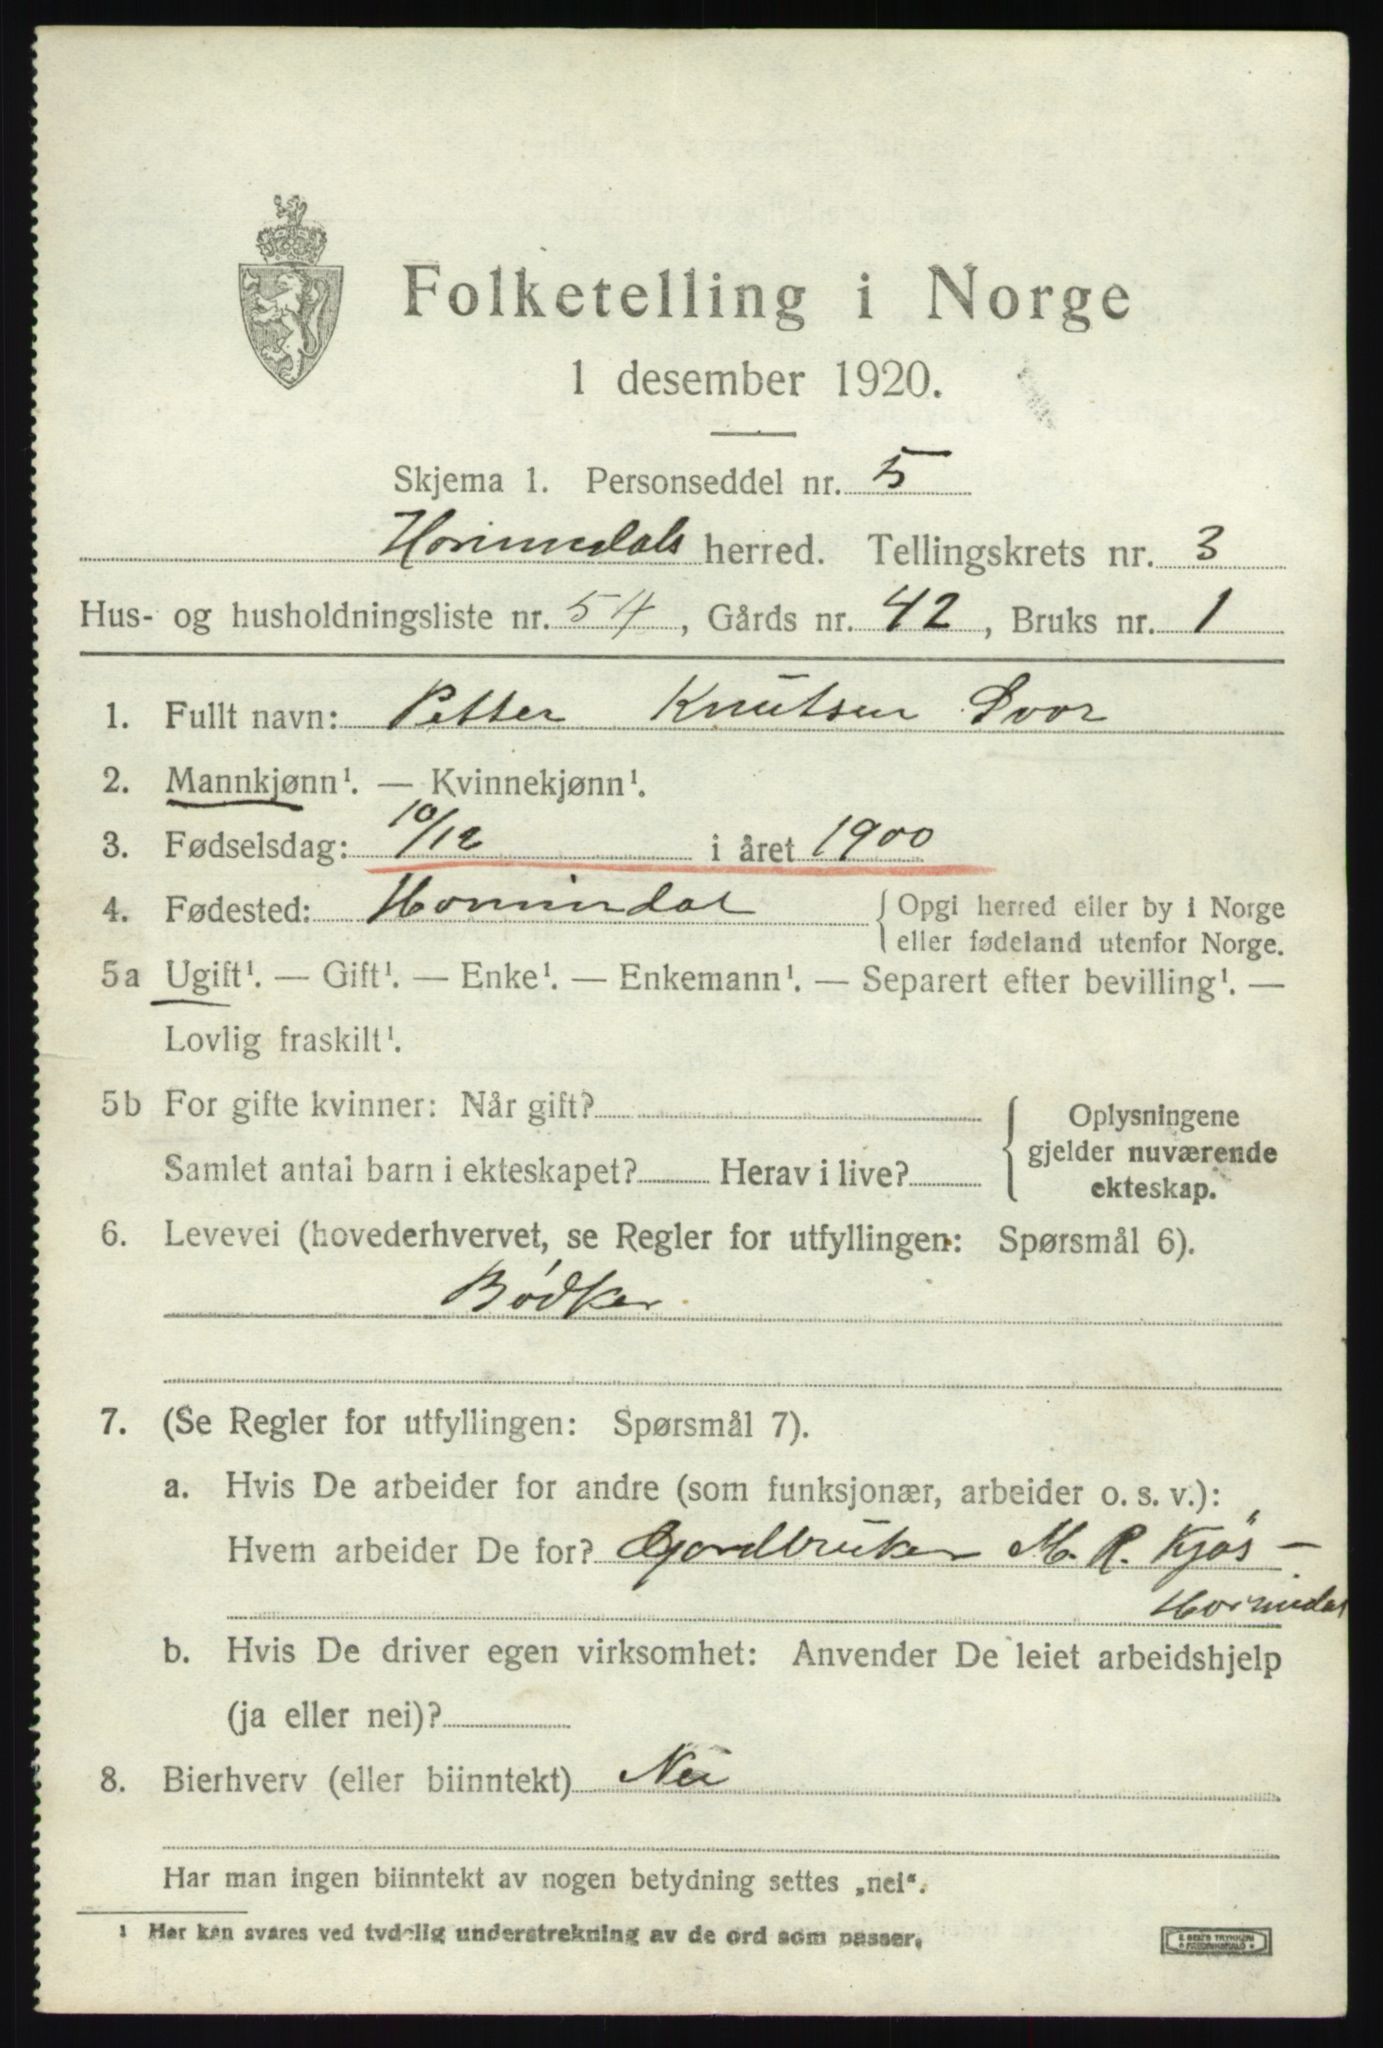 Folketelling i Norge
1 desember 1920.
Skjema 1. Personseddel nr. 5
Hornindals herred. Tellingskrets nr. 3
Hus- og husholdningsliste nr. 54, Gårds nr. 42, Bruks nr. 1
1. Fullt navn: Petter Knutsen Svor
2. Mannkjønn¹. — Kvinnekjønn¹.
3. Fødselsdag: 10/12 i året 1900
4. Fødested: Hornindal { Opgi herred eller by i Norge
eller fødeland utenfor Norge.
5a Ugift¹. — Gift¹. — Enke¹. — Enkemann¹. — Separert efter bevilling¹. —
Lovlig fraskilt¹.
5b For gifte kvinner: Når gift? { Oplysningene
gjelder nuværende
Samlet antal barn i ekteskapet? Herav i live?
ekteskap.
6. Levevei (hovederhvervet, se Regler for utfyllingen: Spørsmål 6).
Bødker
7. (Se Regler for utfyllingen: Spørsmål 7).
a. Hvis De arbeider for andre (som funksjonær, arbeider o. s. v.):
Hvem arbeider De for? Gjardbruker M. R. Kjøs –
Hornindal
b. Hvis De driver egen virksomhet: Anvender De leiet arbeidshjelp
(ja eller nei)?
8. Bierhverv (eller biinntekt) Nei
Har man ingen biinntekt av nogen betydning settes „nei“.
¹ Her kan svares ved tydelig understrekning av de ord som passer.